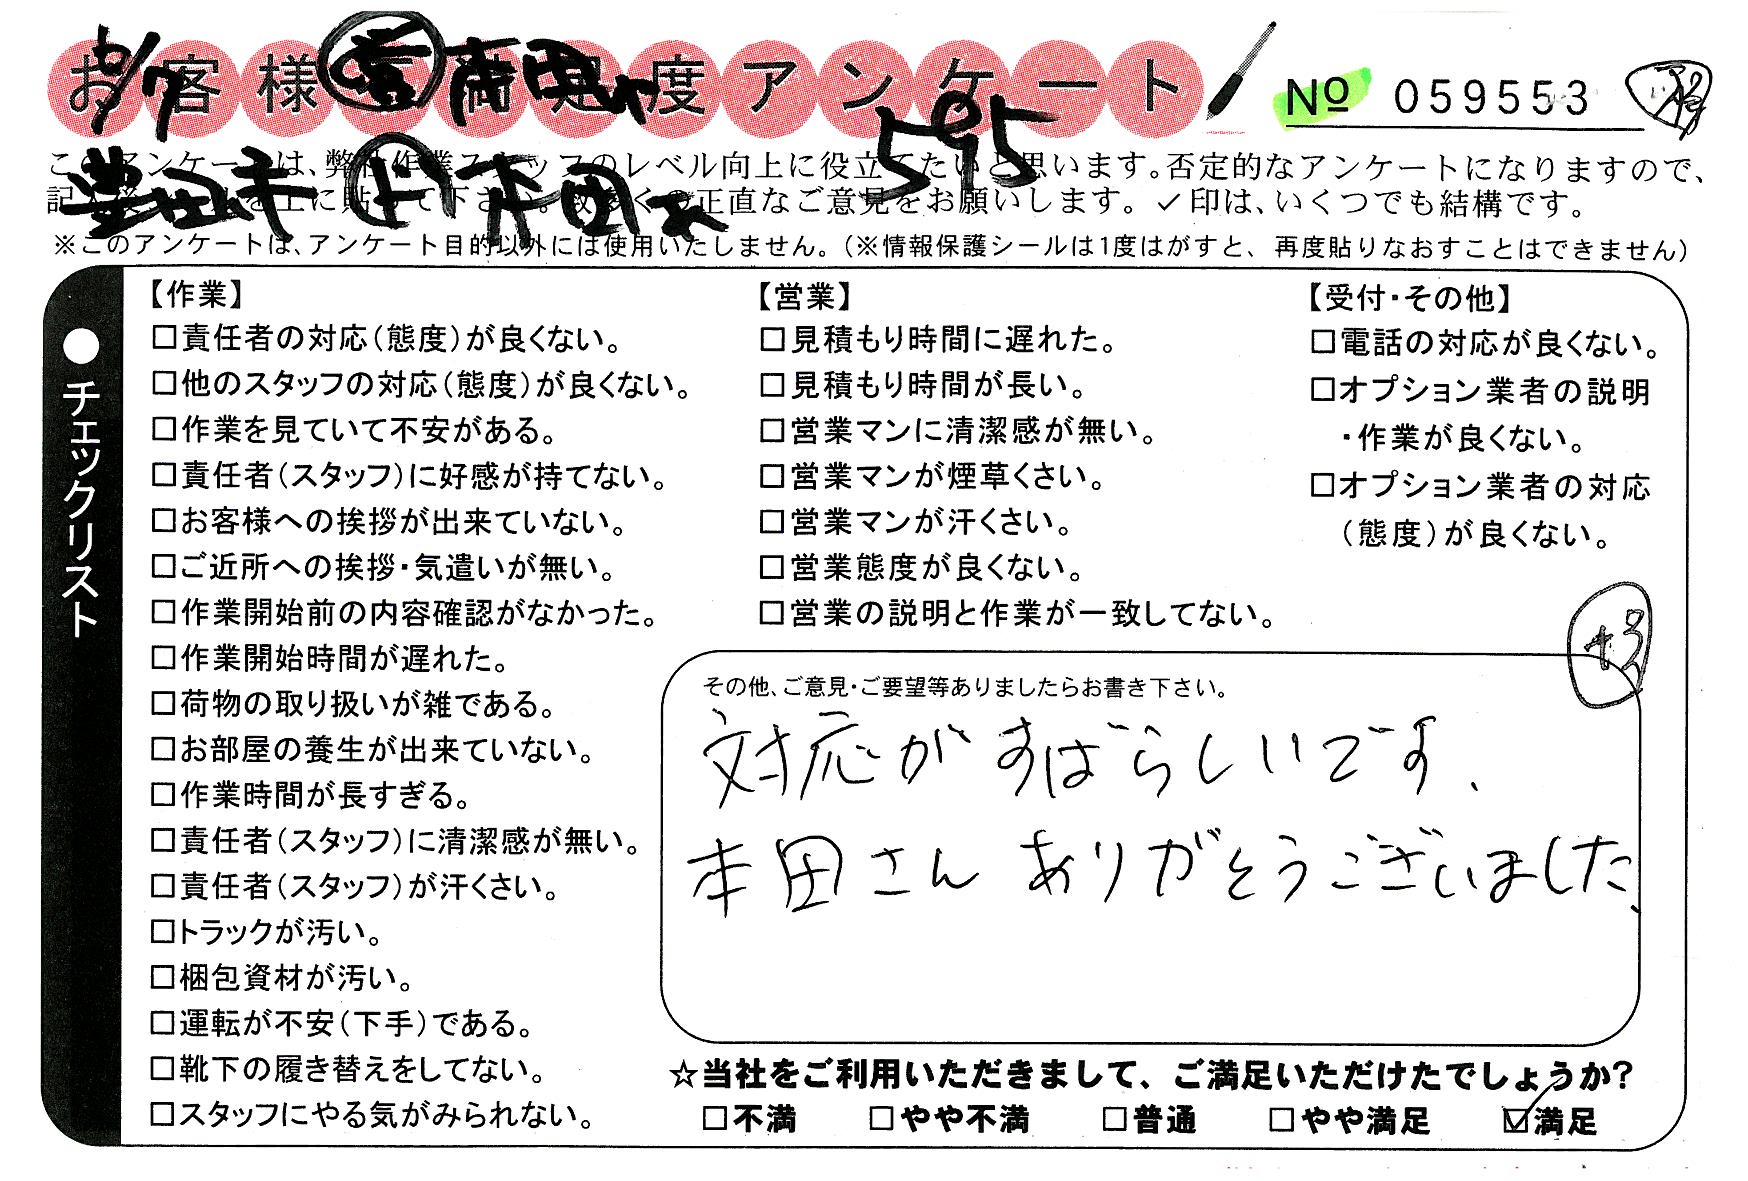 お客様満足度アンケート
No 059553
595
このアンケートは、弊社作業スタッフのレベル向上に役立てたいと思います。否定的なアンケートになりますので、
豊田市
正直なご意見をお願いします。✓印は、いくつでも結構です。
※このアンケートは、アンケート目的以外には使用いたしません。(※情報保護シールは1度はがすと、再度貼りなおすことはできません)
●チェックリスト
【作業】
□責任者の対応(態度)が良くない。
□他のスタッフの対応(態度)が良くない。
□作業を見ていて不安がある。
□責任者(スタッフ)に好感が持てない。
□お客様への挨拶が出来ていない。
□ご近所への挨拶・気遣いが無い。
□作業開始前の内容確認がなかった。
□作業開始時間が遅れた。
□荷物の取り扱いが雑である。
□お部屋の養生が出来ていない。
□作業時間が長すぎる。
□責任者(スタッフ)に清潔感が無い。
□責任者(スタッフ)が汗くさい。
□トラックが汚い。
□梱包資材が汚い。
□運転が不安(下手)である。
□靴下の履き替えをしてない。
□スタッフにやる気がみられない。
【営業】
□見積もり時間に遅れた。
□見積もり時間が長い。
□営業マンに清潔感が無い。
□営業マンが煙草くさい。
□営業マンが汗くさい。
□営業態度が良くない。
□営業の説明と作業が一致してない。
【受付・その他】
□電話の対応が良くない。
□オプション業者の説明
・作業が良くない。
□オプション業者の対応
(態度)が良くない。
その他、ご意見・ご要望等ありましたらお書き下さい。
対応がすばらしいです、
本田さん ありがとうございました、
☆当社をご利用いただきまして、ご満足いただけたでしょうか?
□不満 □やや不満 □普通 □やや満足 ☑満足